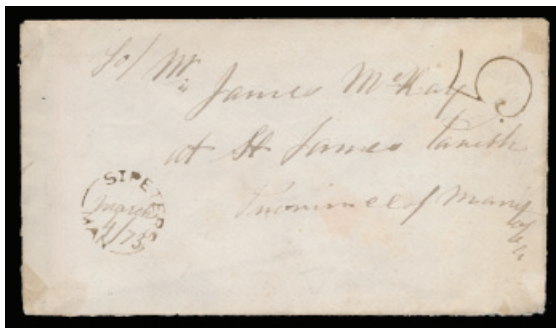 To/ Mr James McKay
5
at St James Parish
Province of Manitoba
ST PETERS
March
4/73
MAN